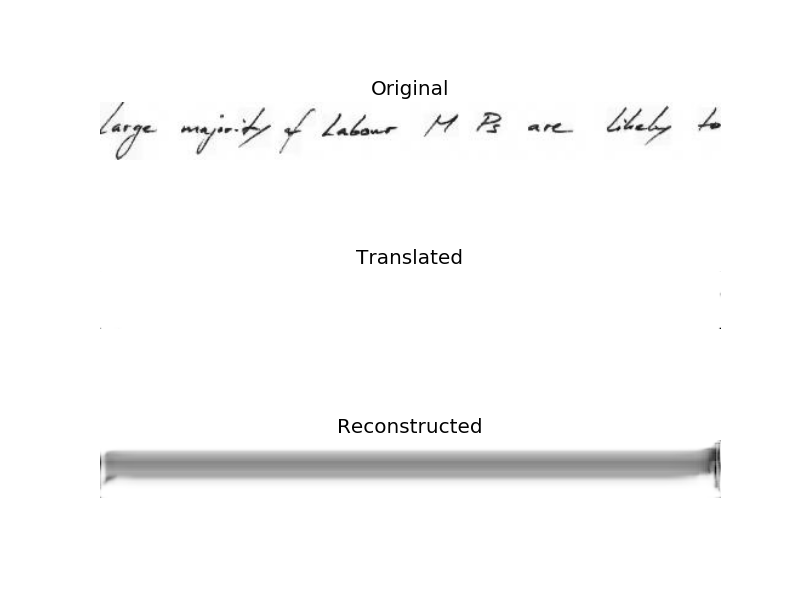 Original
large majority of Labour M Ps are likely to
Translated
Reconstructed